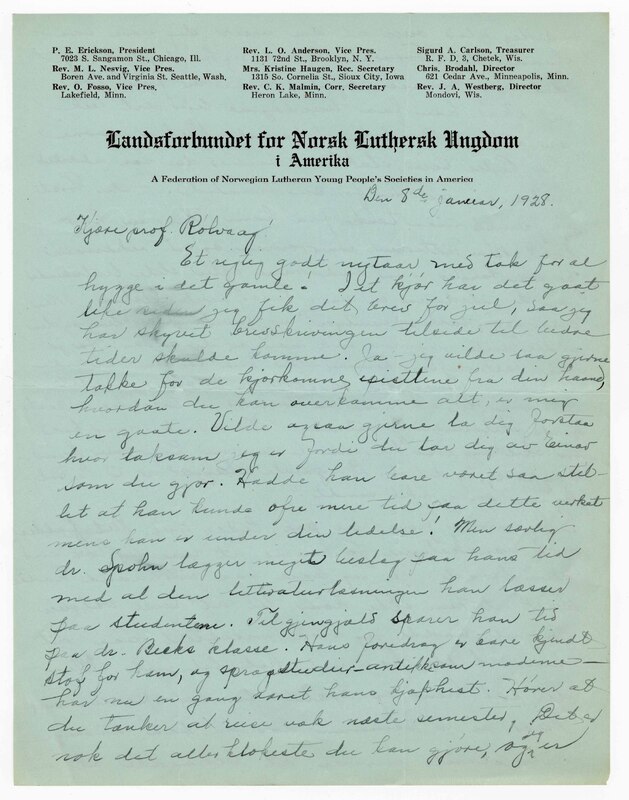 P. E. Erickson, President
7023 S. Sangamon St., Chicago, Ill.
Rev. M. L. Nesvig, Vice Pres.
Boren Ave. and Virginia St. Seattle, Wash.
Rev. O. Fosso, Vice Pres.
Lakefield, Minn.
Rev. L. O. Anderson, Vice Pres.
1131 72nd St., Brooklyn, N. Y.
Mrs. Kristine Haugen, Rec. Secretary
1315 So. Cornelia St., Sioux City, Iowa
Rev. C. K. Malmin, Corr. Secretary
Heron Lake, Minn.
Sigurd A. Carlson, Treasurer
R. F. D. 3, Chetek, Wis.
Chris. Brodahl, Director
621 Cedar Ave., Minneapolis, Minn.
Rev. J. A. Westberg, Director
Mondovi, Wis.
Landsforbundet for Norsk Luthersk Ungdom
i Amerika
A Federation of Norwegian Lutheran Young People's Societies in America
Den 8de januar, 1928.
Kjære prof. Rolvaag
Et rigtig godt nytaar med tak for al
hygge i det gamle! I et kjør har det gaat
like siden jeg fik det brev før jul, saa jeg
har skyvet brevskrivingen tilside til bedre
tider skulde komme. Ja jeg vilde saa gjerne
takke for de kjærkomne fra din haand,
hvordan du kan overkomme alt, er mig
en gaate. Vilde ogsaa gjerne la dig forstaa
hvor taksam jeg er fordi du tar dig av Einar
som du gjør. Hadde han bare været saa stel-
let at han kunde ofre mere tid paa dette verket
mens han er under din ledelse! Men særlig
dr. Spohn lægger meget beslag paa hans tid
med al den litteraturlæsningen han læsser
paa studentene. Til gjengjæld sparer han tid
paa dr. Becks klasse. Hans foredrag er bare kjendt
stof for ham, og sprogstudier - antik som moderne -
har nu en gang været hans kjæphest. Hører at
du tænker at reise væk næste semester. Det er
nok det allerklokeste du kan gjøre, og er